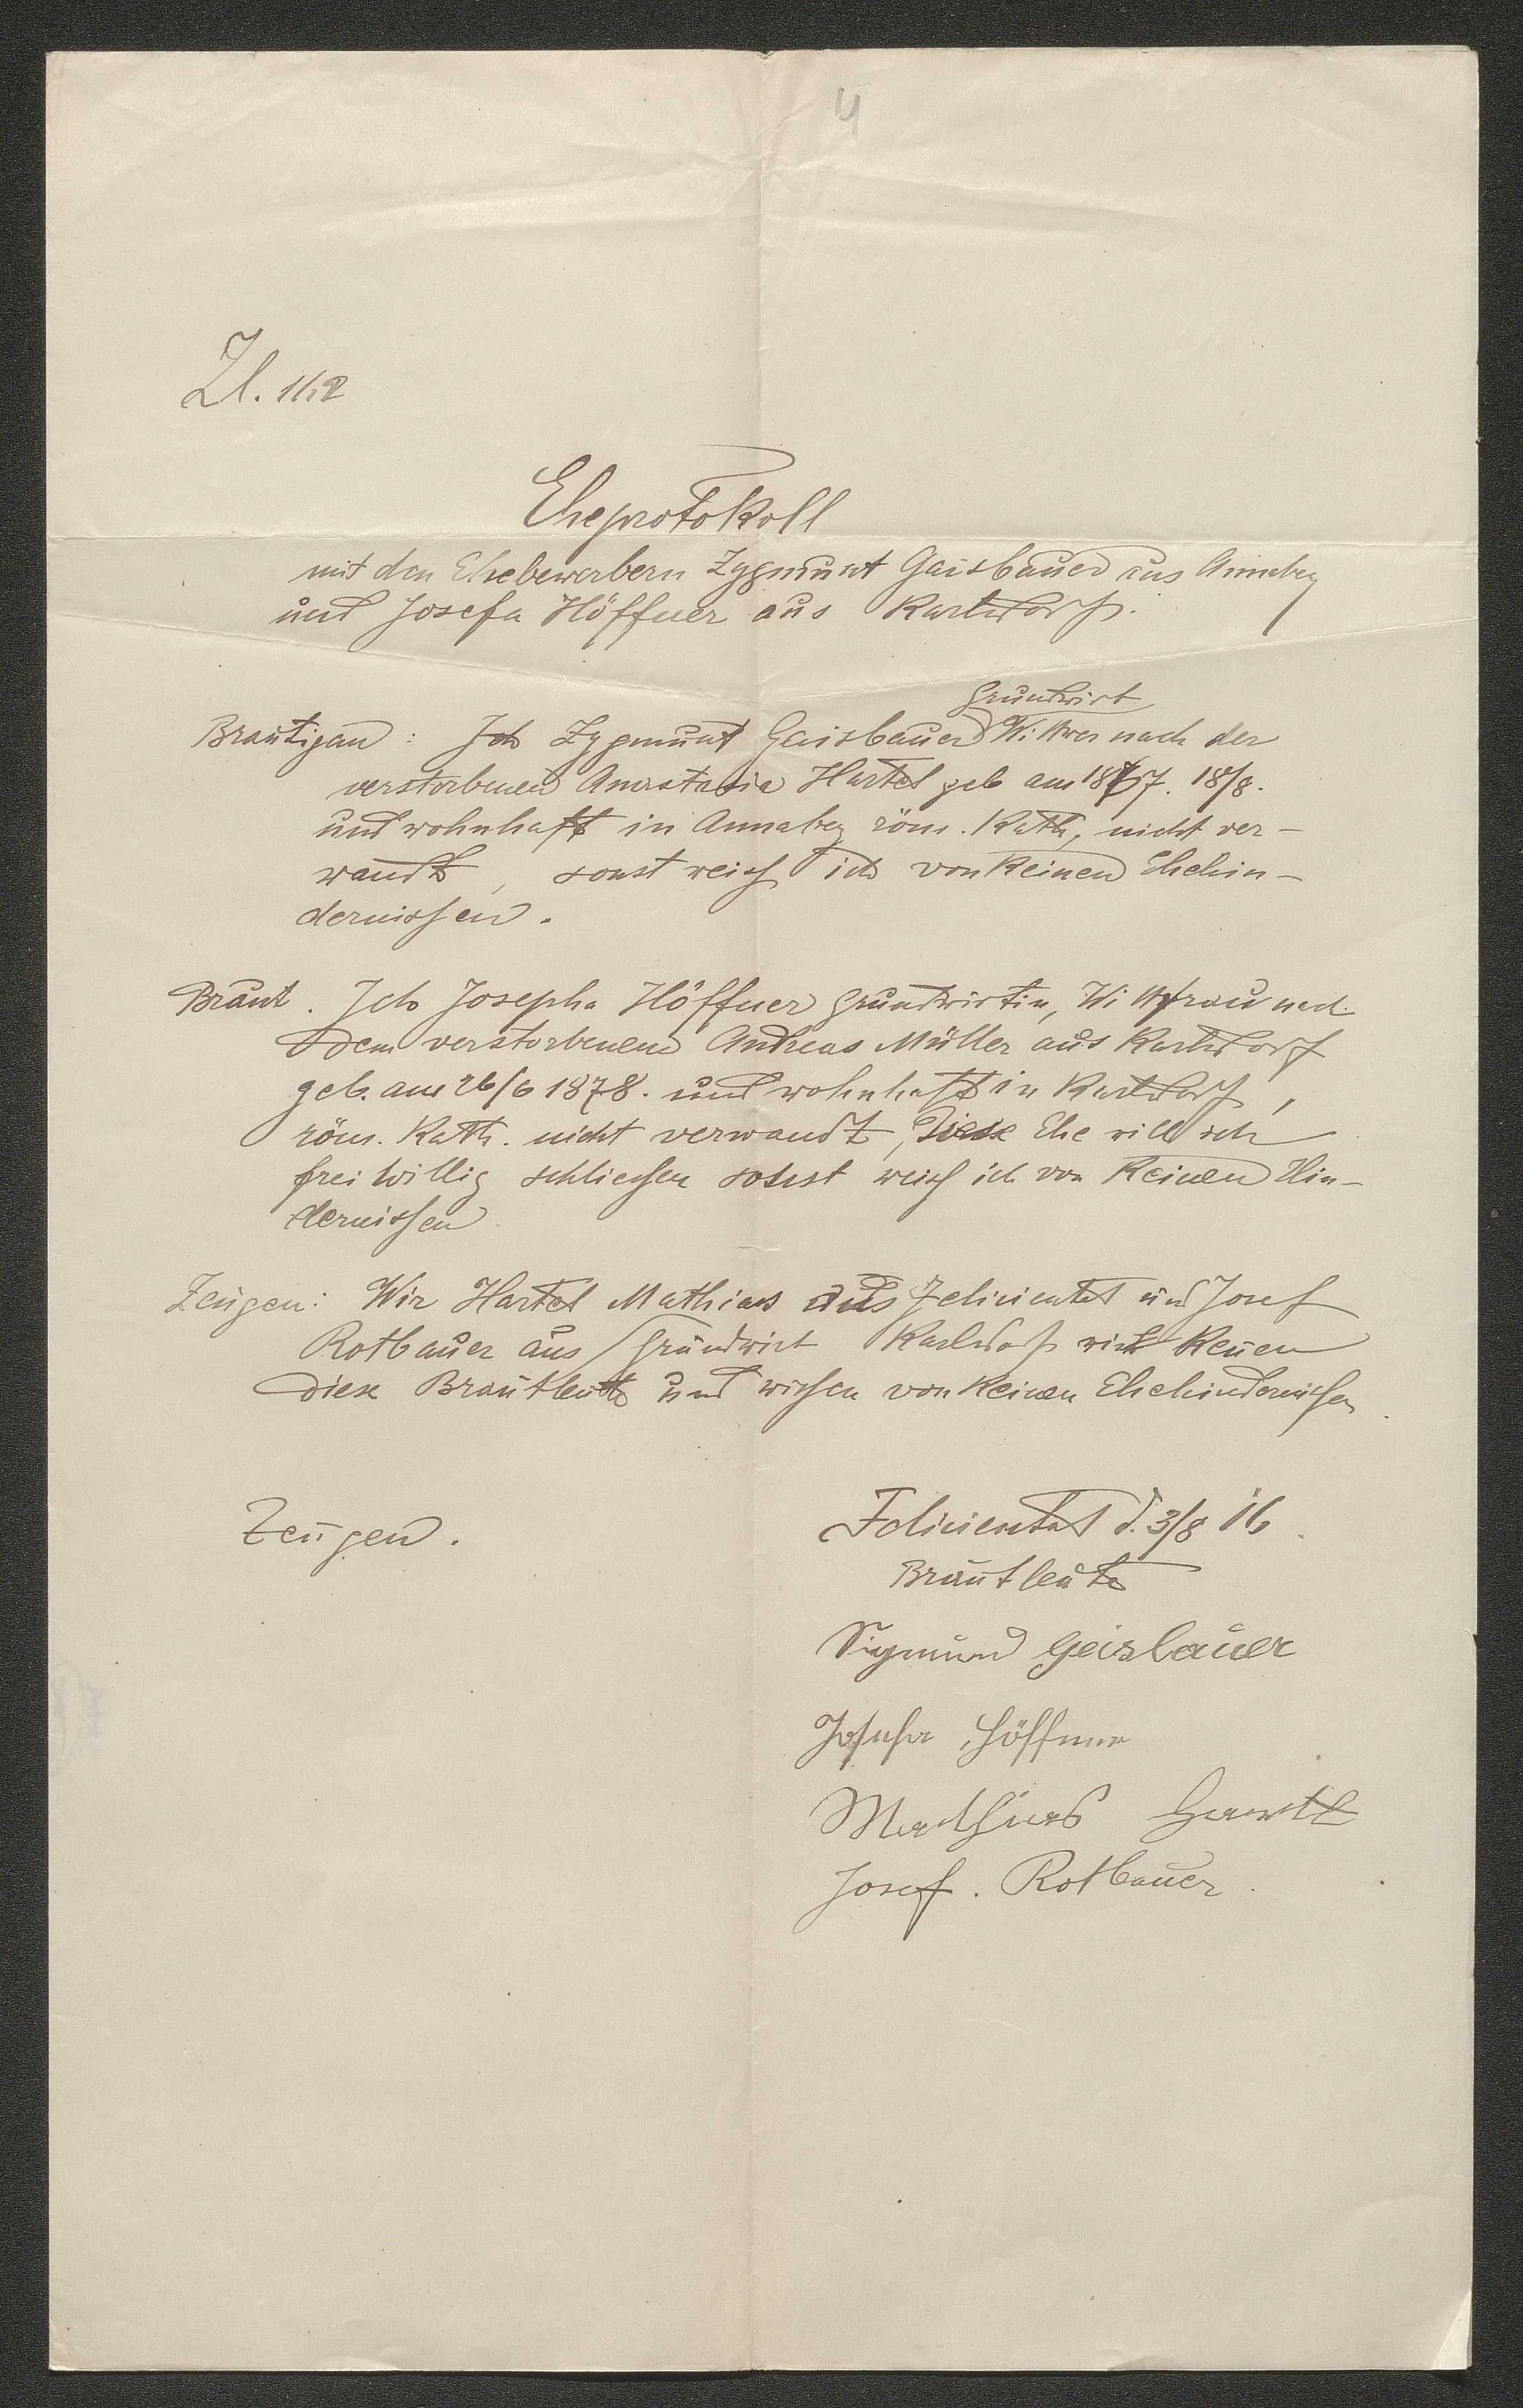 4
Zl. 112
Eheprotokoll
mit den Ehebewerbern Zygmunt Gaisbauer aus Annaberg
und Josefa Höffner aus Karlsdorf.
Grundwirt
Brautigam : Ich Zygmunt Gaisbauer Wittwer nach der
verstorbenen Anastasia Hartel geb am 18 7. 18/8.
und wohnhaft in Annaberg röm. Kath, nicht ver-
wandt, sonst weiss ich von keinen Ehehin-
dernissen.
Braut. Ich Josepha Höffner Grundwirtin, Wittfrau nach
dem verstorbenen Andreas Müller aus Karlsdorf
geb. am 26/6 1878. und wohnhaft in Karlsdorf,
röm. Kath. nicht verwandt, Diese Ehe will ich
freiwillig schliessen sonst weiss ich von keinen Hin-
dernissen
Zeugen: Wir Hartel Mathias aus Felicienthal und Josef
Rotbauer aus Grundwirt Karlsdorf wir kenen
diese Brautleute und wissen von keinen Ehehindernissen.
Zeugen.
Felicienthal d. 3/8 16.
Brautleute
Sigmund Geisbauer
Josefa Höffner
Mathias Hartl
Josef. Rotbauer.